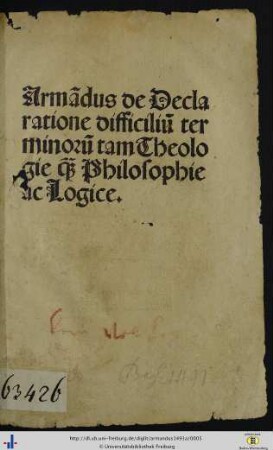 Armãdus de Decla
ratione difficiliũ ter
minorũ tam Theolo
gie q̃ Philosophie
ac Logice.
63426
http://dl.ub.uni-freiburg.de/diglit/armandus1491a/0005
© Universitätsbibliothek Freiburg